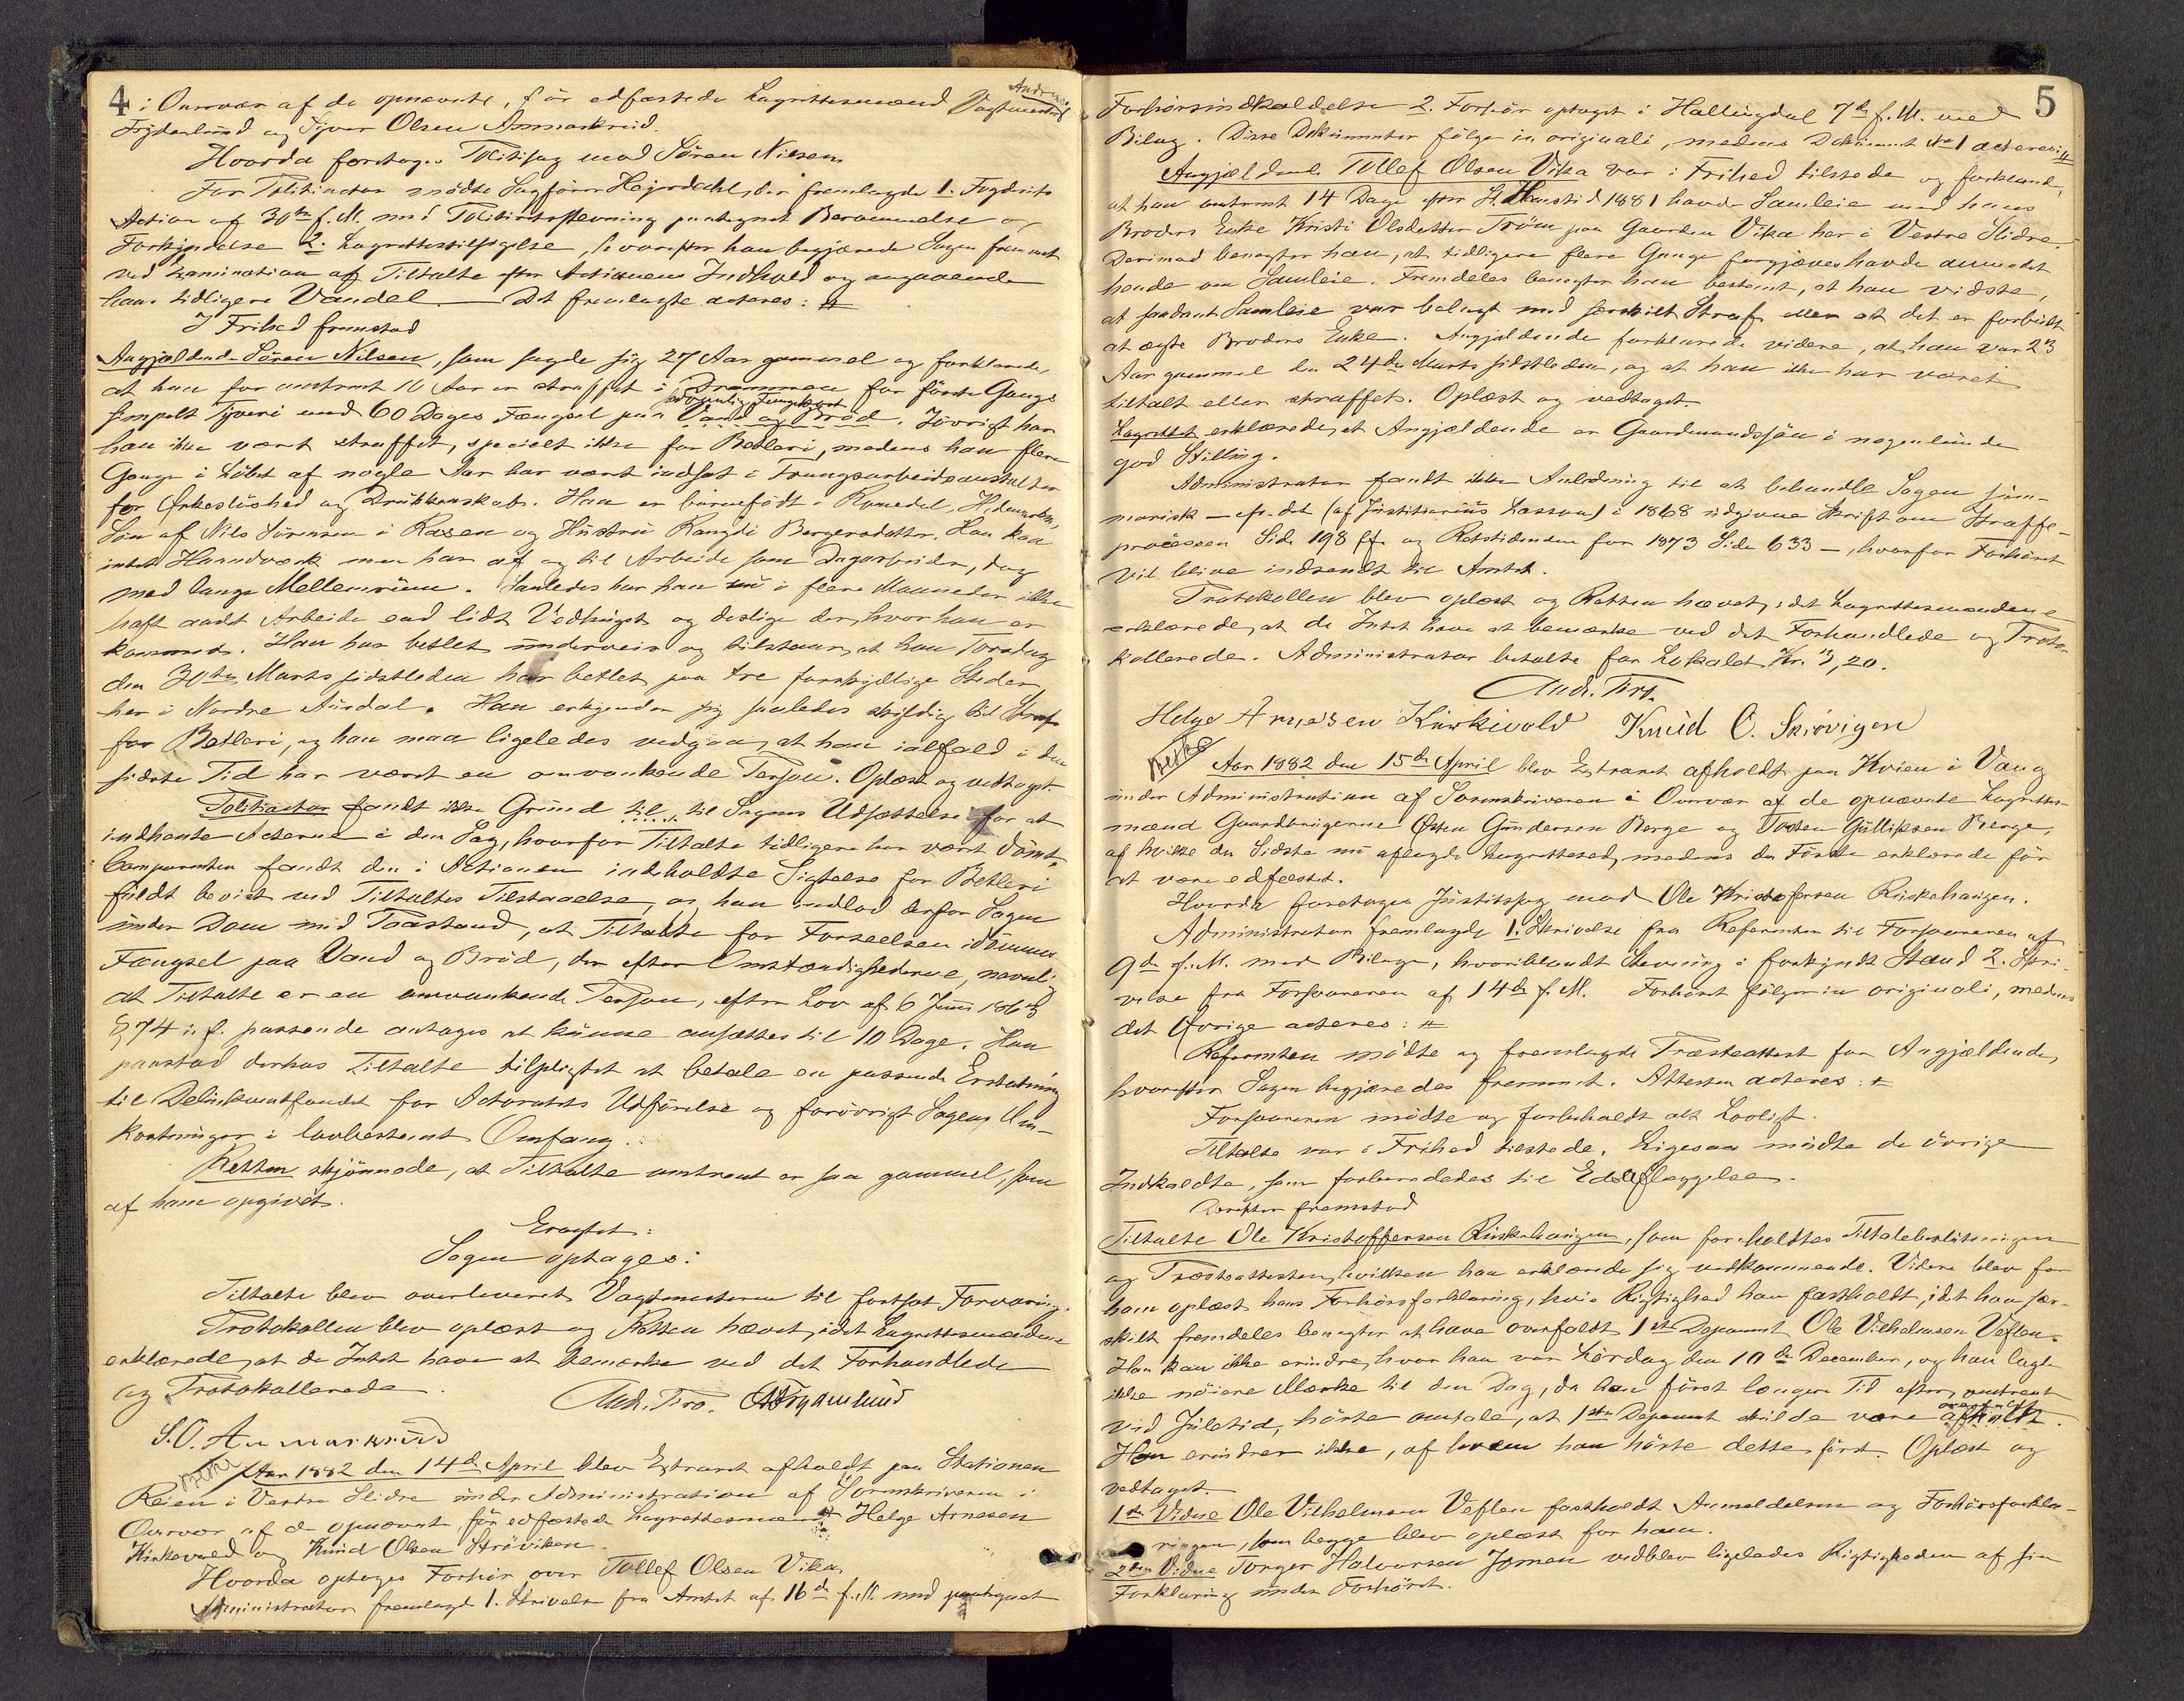 4
i Overvær af de opnævnte, før edfæstede Lagrettesmænd Vagtmester Andreas
Frydenlund og Syver Olsen Anmarkrud.
Hvorda foretoges Politisag mod Søren Nilsen
For Politiactor mødte Sagfører Hejerdahl, der fremlagde 1. Fogderiets
Action af 30te f. M. med Politiretsstevning paategnet Berammelse og
Forkyndelse 2. Lagrettestilsigelse, hvorefter han begjærede Sagen fremmet
ved Examination af Tiltalte efter Actionens Indhold og angaaende
hans tidligere Vandel. Det fremlagte acteres:
I Frihed fremstod
Angjældende Søren Nilsen, som sagde sig 27 Aar gammel og forklarede,
at han for omtrent 10 Aar er straffet i Drammen for første Gangs
simpelt Tyveri med 60 Dages Fængsel paa Vand og Brød. Iøvrigt har
sædvanlig Fangekost
han ikke været straffet, specielt ikke for Betleri, medens han flere
Gange i Løbet af nogle Aar har været indsat i Tvangsarbeidsanstalter
for Ørkesløshed og Drukkenskab. Han er barnefødt i Romedal, Hedemarken,
Søn af Nils Sørensen i Rasen og Hustru Rangdi Bergersdatter. Han kan
intet Haandværk men har af og til Arbeide som Dagarbeider, dog
med lange Mellemrum. Saaledes har han nu i flere Maaneder ikke
haft andet Arbeide end lidt Vedhugst og deslige der, hvor han er
kommet. Han har betlet underveis og tilstaar, at han Torsdag
den 30te Marts sidstleden har betlet paa tre forskjellige Steder
her i Nordre Aurdal. Han erkjender sig saaledes skyldig til Straf
for Betleri, og han maa ligeledes vedgaa, at han ialfald i den
sidste Tid har været en omvankende Person. Oplæst og vedtaget.
Politiactor fandt ikke Grund til til Sagens Udsættelse for at
indhente Acterne i den Sag, hvorfor Tiltalte tidligere har været dømt.
Comparenten fandt den i Actionen indeholdte Sigtelse for Betleri
fuldt bevist ved Tiltaltes Tilstaaelse, og han indlod derfor Sagen
under Dom med Paastand, at Tiltalte for Forseelsen idømmes
Fængsel paa Vand og Brød, der efter Omstændighederne, navnlig
at Tiltalte er en omvankende Person, efter Lov af 6 Juni 1863
§ 74 i. f. passende antages at kunne ansættes til 10 Dage. Han
paastod derhos Tiltalte tilpligtet at betale en passende Erstatning
til Delinkventfondet for Actoratets Udførelse og forøvrigt Sagens Om-
kostninger i lovbestemt Omfang.
Retten skjønnede, at Tiltalte omtrent er saa gammel, som
af ham opgivet.
Eragtet:
Sagen optages:
Tiltalte blev overleveret Vagtmesteren til fortsat Forvaring.
Protokollen blev oplæst og Retten hævet, idet Lagrettesmændene
erklærede, at de Intet have at bemærke ved det Forhandlede
og Protokollerede.
And. Firo. A Frydenlund
S. O. Anmarkrud
Aar 1882 den 14de April blev Extraret afholdt paa Stationen
Reien i Vestre Slidre under Administration af Sorenskriveren i
Overvær af de opnævnte, før edfæstede Lagrettesmænd Helge Arnesen
Kirkevold og Knud Olsen Skrøviken.
Hvorda optoges Forhør over Tollef Olsen Vika
Administrator fremlagde 1. Skrivelse fra Amtet af 16de f. M. med paategnet
5
Forhørsindkaldelse 2. Forhør optaget i Hallingdal 7de f. M. med
Bilag. Disse Dokumenter følge in originali, medens Dokument No 1 acteres:
Angjældende Tollef Olsen Vika var i Frihed tilstede og forklarede,
at han omtrent 14 Dage før St. Hanstid 1881 havde Samleie med hans
Broders Enke Kristi Olsdatter Trøm paa Gaarden Vika her i Vestre Slidre.
Derimod benegter han, at tidligere flere Gange forgjæves havde anmodet
hende om Samleie. Fremdeles benegter han bestemt, at han vidste,
at saadant Samleie var belagt med særskilt Straf eller at det er forbudt
at ægte Broders Enke. Angjældende forklarede videre, at han var 23
Aar gammel den 24de Marts sidstleden, og at han ikke har været
tiltalt eller straffet. Oplæst og vedtaget.
Lagrettet erklærede, at Angjældende er Gaardmandssøn i nogenlunde
god Stilling.
Administrator fandt ikke Anledning til at behandle Sagen sum-
marisk – cfr. det (af Justitiarius Lasson) i 1868 udgivne Skrift om Straffe-
processen Side 198 ff og Retstidenden for 1873 Side 633 –, hvorfor Forhøret
vil blive indsendt til Amtet.
Protokollen blev oplæst og Retten hævet, idet Lagrettesmændene
erklærede, at de Intet have at bemærke ved det Forhandlede og Proto-
kollerede. Administrator betalte for Lokalet Kr. 3,20.
And. Firo.
Helge Arnesen Kirkevold Knud O. Skrøvigen
Aar 1882 den 15de April blev Extraret afholdt paa Kvien i Vang
under Administration af Sorenskriveren i Overvær af de opnævnte Lagrettes-
mænd Gaardbrugerne Østen Gundersen Berge og Tosten Gulliksen Berge,
af hvilke den Sidste nu aflagde Lagretteed, medens den Første erklærede før
at være edfæstet.
Hvorda foretoges Justitssag mod Ole Kristoffersen Ruskehaugen.
Administrator fremlagde 1. Skrivelse fra Referenten til Forsvareren af
9de f. M. med Bilage, hvoriblandt Stevning i forkyndt Stand 2. Skri-
velse fra Forsvareren af 14de f. M. Forhøret følger in originali, medens
det Øvrige acteres:
Referenten mødte og fremlagde Præsteattest for Angjældende,
hvorefter Sagen begjæredes fremmet. Attesten acteres:
Forsvareren mødte og forbeholdt alt Lovligt.
Tiltalte var i Frihed tilstede. Ligesaa mødte de øvrige
Indkaldte, som forberededes til Edsaflæggelse.
Derefter fremstod
Tiltalte Ole Kristoffersen Ruskehaugen, som foreholdtes Tiltalebeslutningen
og Præsteattesten, hvilken han erklærede sig vedkommende. Videre blev for
ham oplæst hans Forhørsforklaring, hvis Rigtighed han fastholdt, idet han sær-
skilt fremdeles benegter at have overfaldt 1ste Deponent Ole Vilhelmsen Veflen.
Han kan ikke erindre, hvor han var Lørdag den 10de December, og han lagde
ikke nøiere Mærke til den Dag, da han først længere Tid efter, omtrent
ved Juletid, hørte omtale, at 1ste Deponent skulde være overfaldt.
Han erindrer ikke, af hvem han hørte dette først. Oplæst og
vedtaget.
1ste Vidne Ole Vilhelmsen Veflen fastholdt Anmeldelsen og Forhørsforkla-
ringen, som begge blev oplæst for ham.
2det Vidne Torger Halvorsen Jomen vedblev ligeledes Rigtigheden af sin
Forklaring under Forhøret.